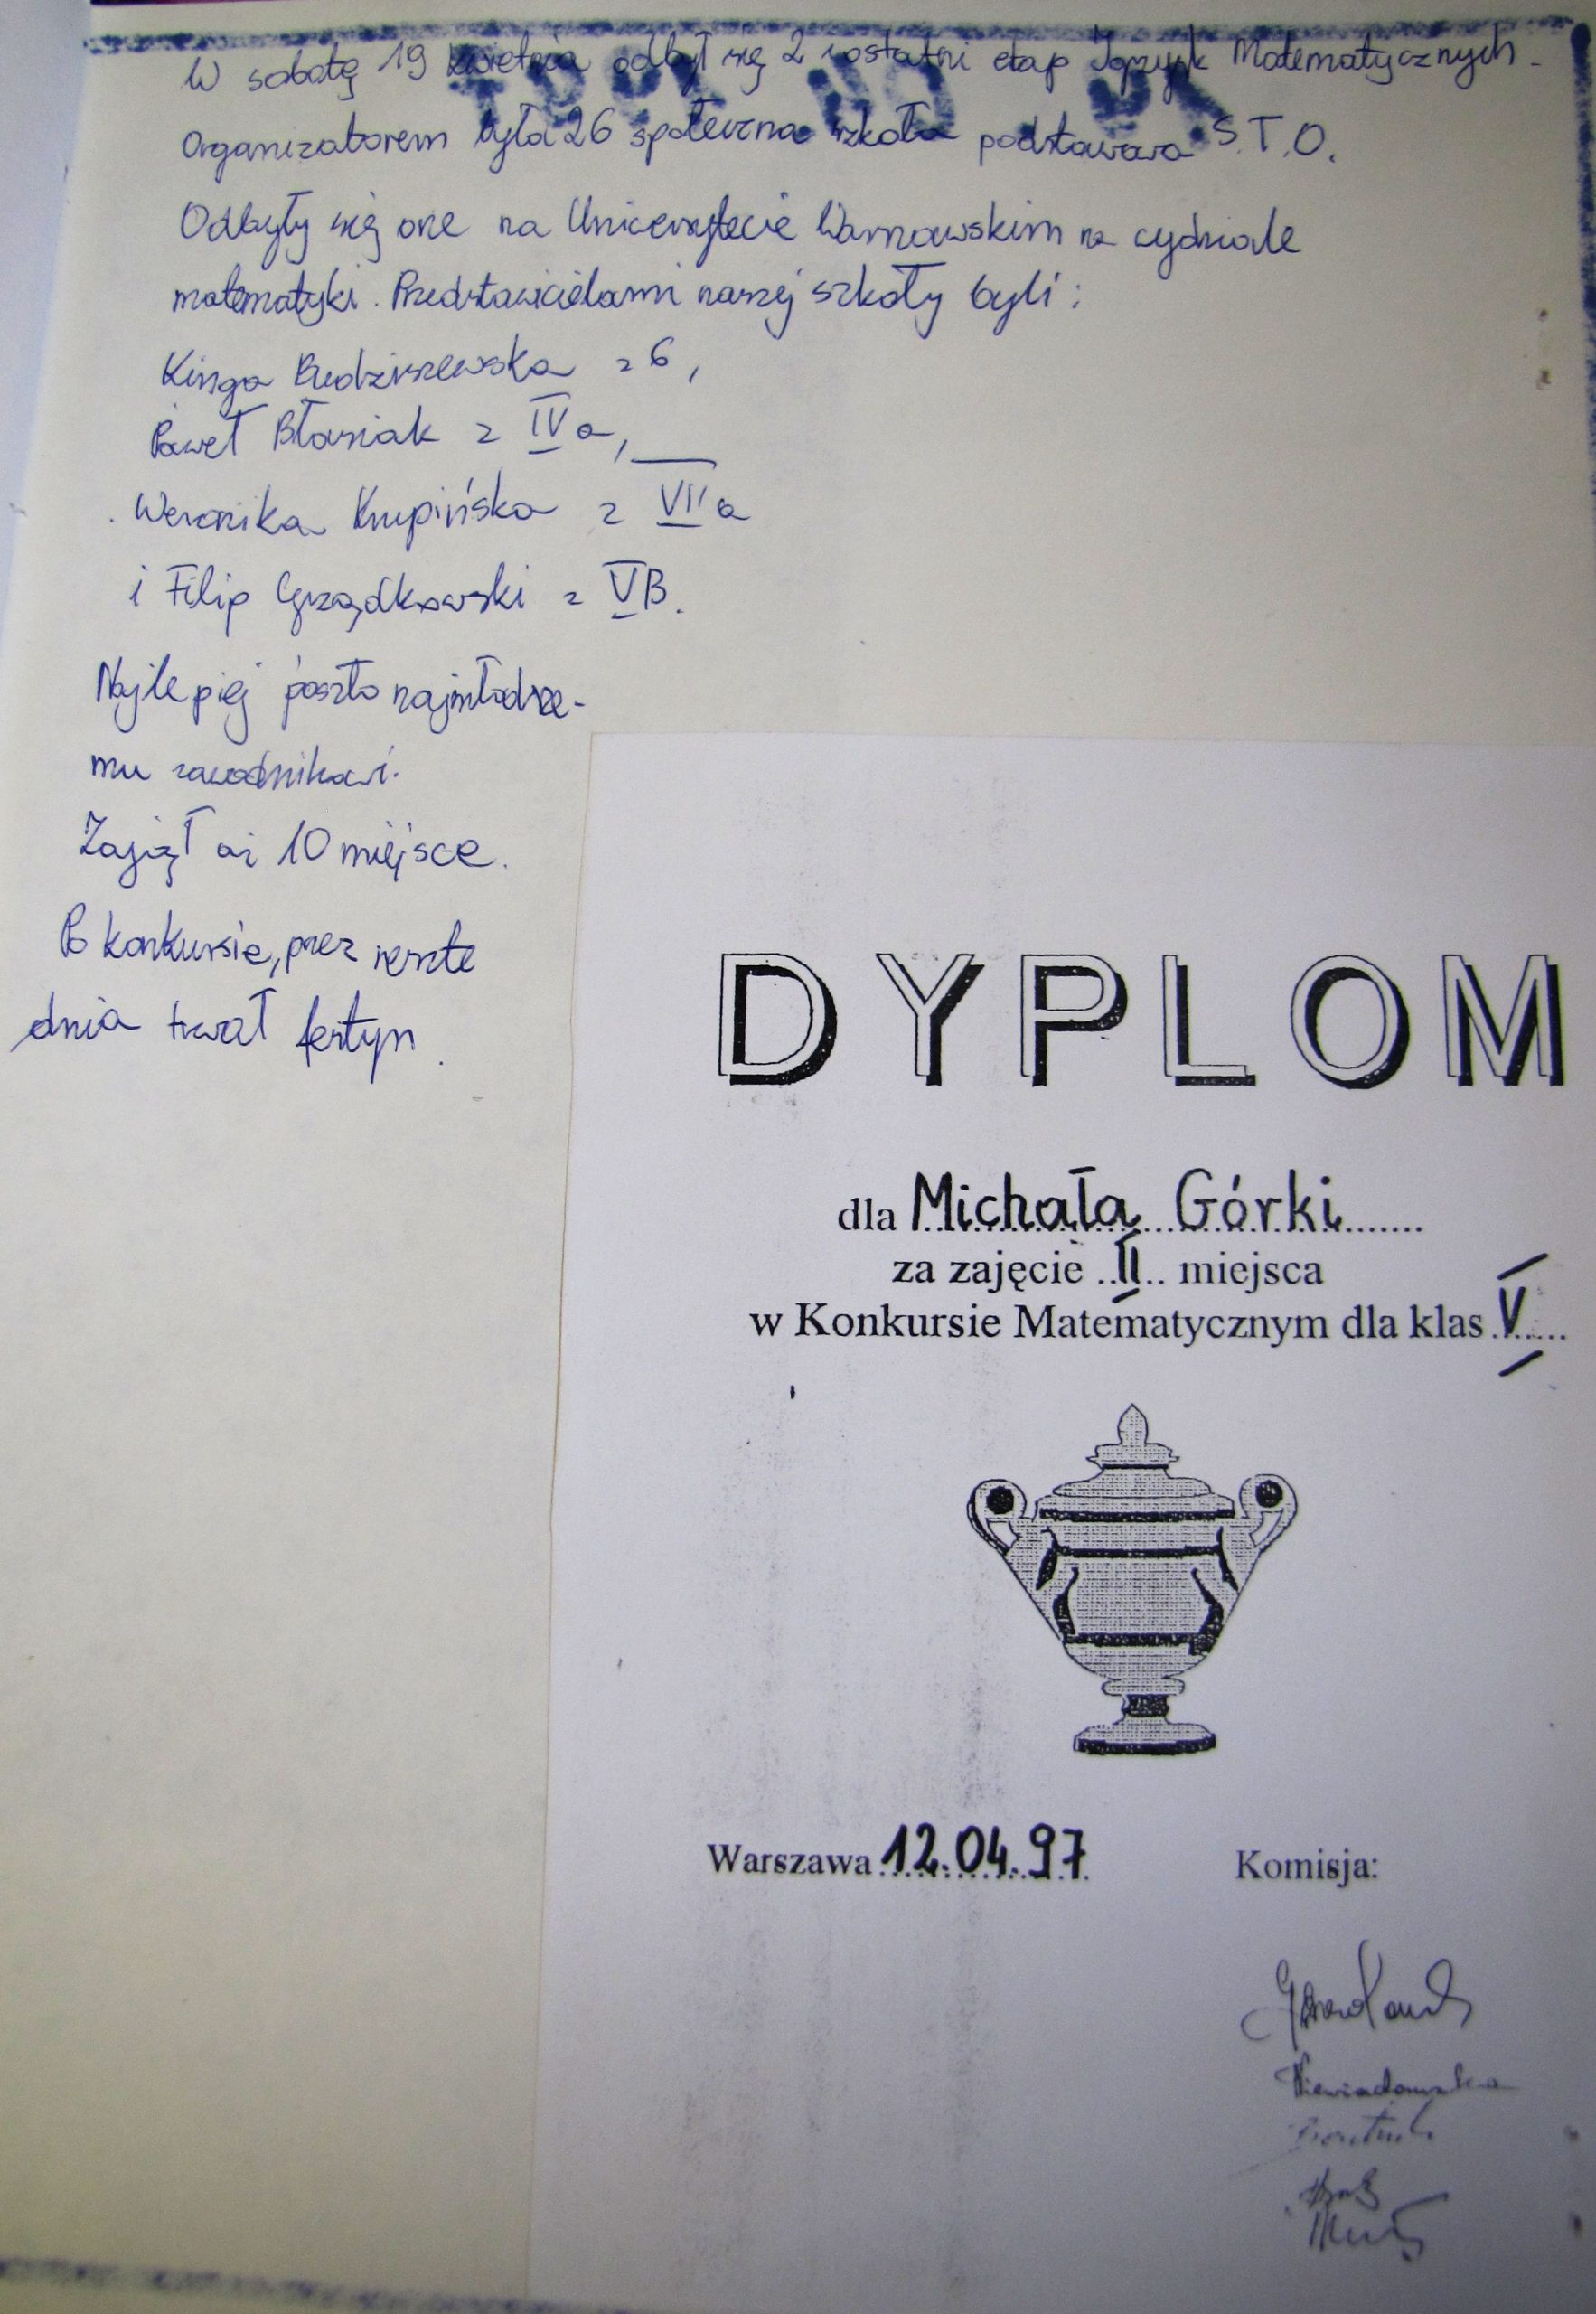 W sobotę 19 kwietnia odbył się 2 i ostatni etap Igrzysk Matematycznych.
Organizatorem była 26 społeczna szkoła podstawowa S.T.O.
Odbyły się one na Uniwersytecie Warszawskim na wydziale
matematyki. Przedstawicielami naszej szkoły byli:
Kinga Budziszewska z 6,
Paweł Błasiak z IVa,
Weronika Krupińska z VIIa
i Filip Grządkowski z VB.
Najlepiej poszło najmłodsze-
mu zawodnikowi.
Zajął aż 10 miejsce.
Po konkursie, przez resztę
dnia trwał festyn.
DYPLOM
dla Michała Górki
za zajęcie II miejsca
w Konkursie Matematycznym dla klas V
Warszawa 12.04.97
Komisja:
Niewiadomska